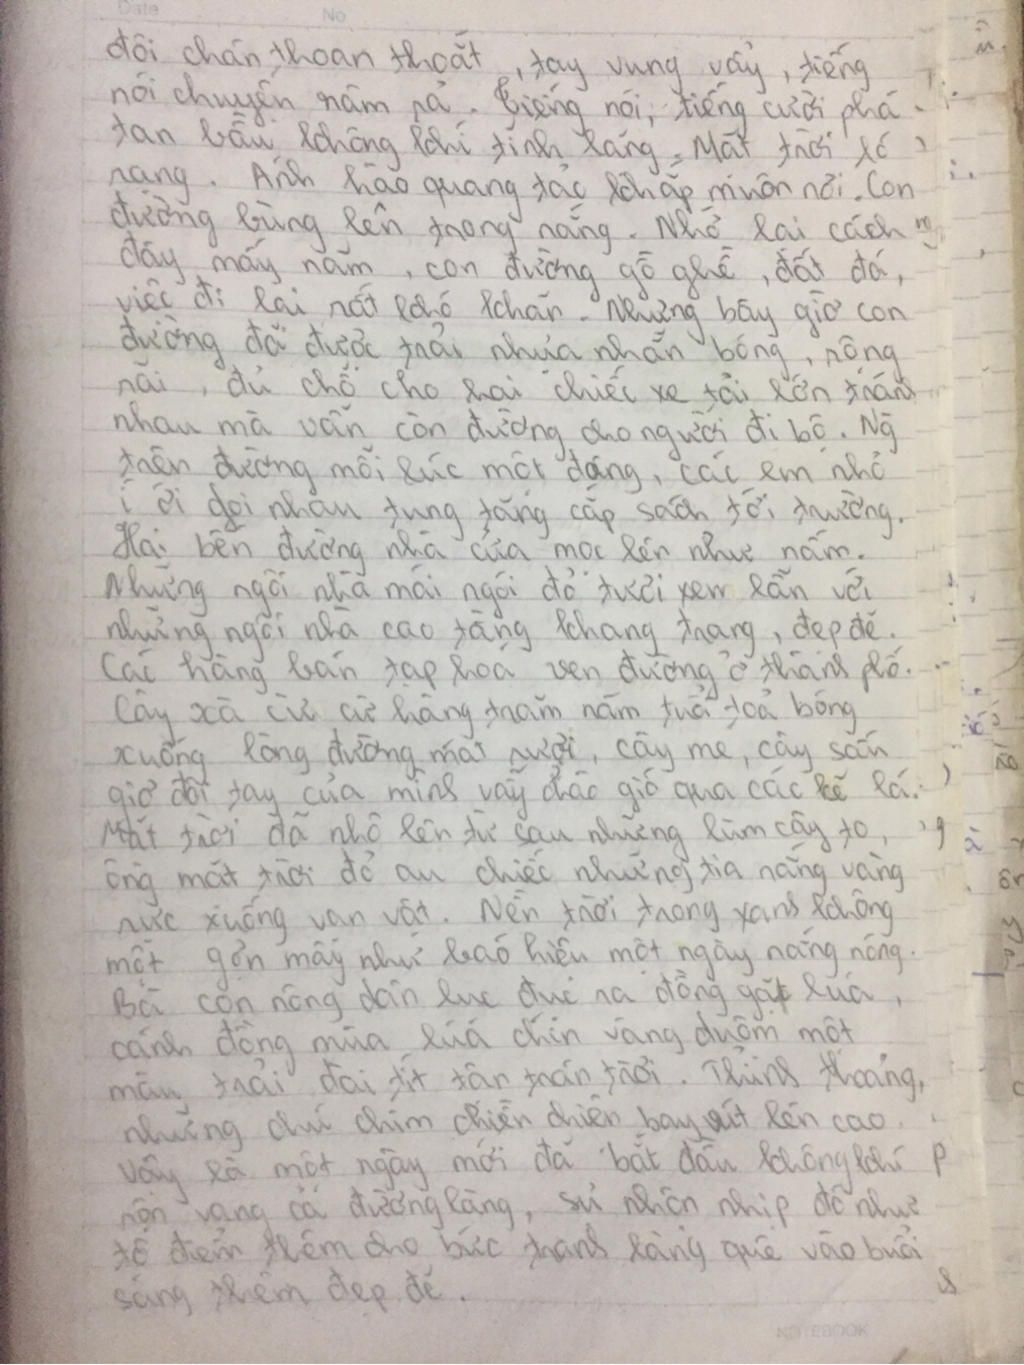 Date No
đôi chân thoan thoắt, tay vung vẩy, tiếng
nói chuyện râm rả. Tiếng nói, tiếng cười phá
tan bầu không khí tĩnh lặng. Mặt trời ló
rạng. Ánh hào quang tảo khắp muôn nơi. Con
đường bừng lên trong nắng. Nhớ lại cách
đây mấy năm, con đường gồ ghề, đất đá,
việc đi lại rất khó khăn. Nhưng bây giờ con
đường đã được trải nhựa nhẵn bóng, rộng
rãi, đủ chỗ cho hai chiếc xe tải lớn tránh
nhau mà vẫn còn đường cho người đi bộ. Ng
trên đường mỗi lúc một đông, các em nhỏ
í ới gọi nhau tung tăng cắp sách tới trường.
Hai bên đường nhà cửa mọc lên như nấm.
Những ngôi nhà mái ngói đỏ tươi xen lẫn với
những ngôi nhà cao tầng khang trang, đẹp đẽ.
Các hàng bán tạp hoá ven đường ở thành phố.
Cây xà cừ cừ hàng trăm năm tuổi toả bóng
xuống lòng đường mát rượi, cây me, cây sấu
giơ đôi tay của mình vẫy chào gió qua các kẽ lá.
Mặt trời đã nhô lên từ sau những lùm cây to,
ông mặt trời đỏ au chiếc những tia nắng vàng
rực xuống vạn vật. Nền trời trong xanh không
một gợn mây như báo hiệu một ngày nắng nóng.
Bà con nông dân lục đục ra đồng gặt lúa,
cánh đồng mùa lúa chín vàng đượm một
màu trải dài tít tận trân trời. Thỉnh thoảng,
những chú chim chiền chiện bay vút lên cao.
Vậy là một ngày mới đã bắt đầu không khí
rộn vang cả đường làng, sự nhộn nhịp đó như
tô điểm thêm cho bức tranh làng quê vào buổi
sáng thêm đẹp đẽ.
NOTEBOOK